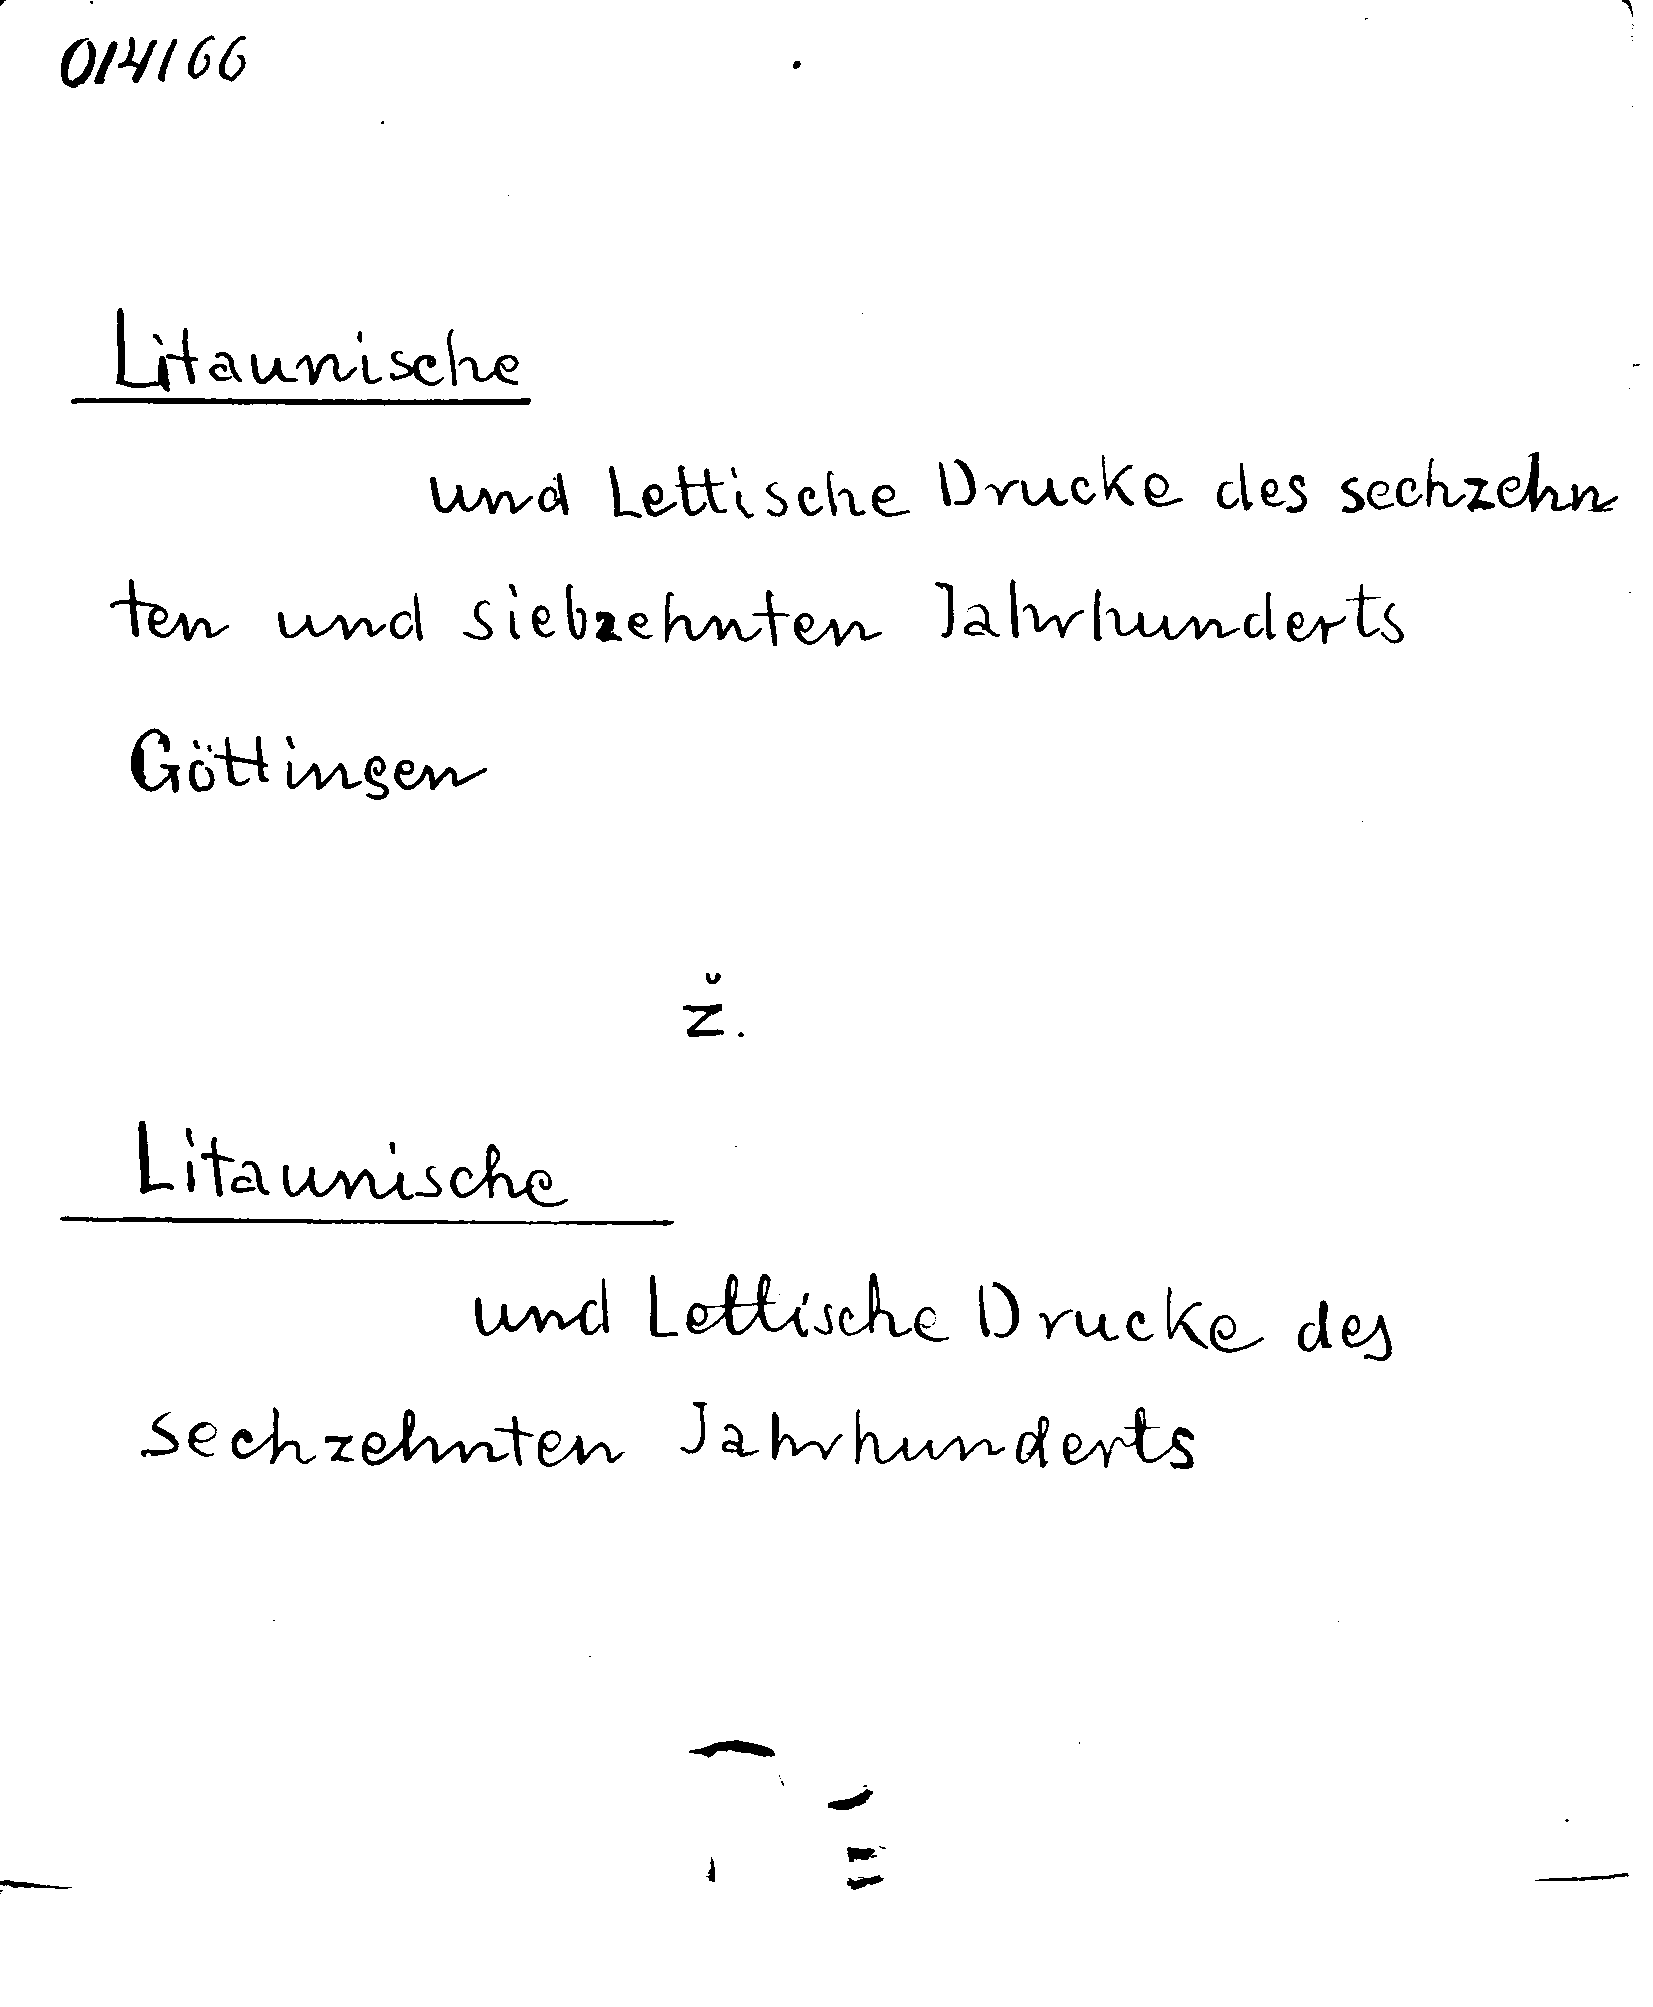 014166
Litaunische
und Lettische Drucke des sechzehn
ten und siebzehnten Jahrhunderts
Göttingen
ž.
Litaunische
und Lettische Drucke des
sechzehnten Jahrhunderts